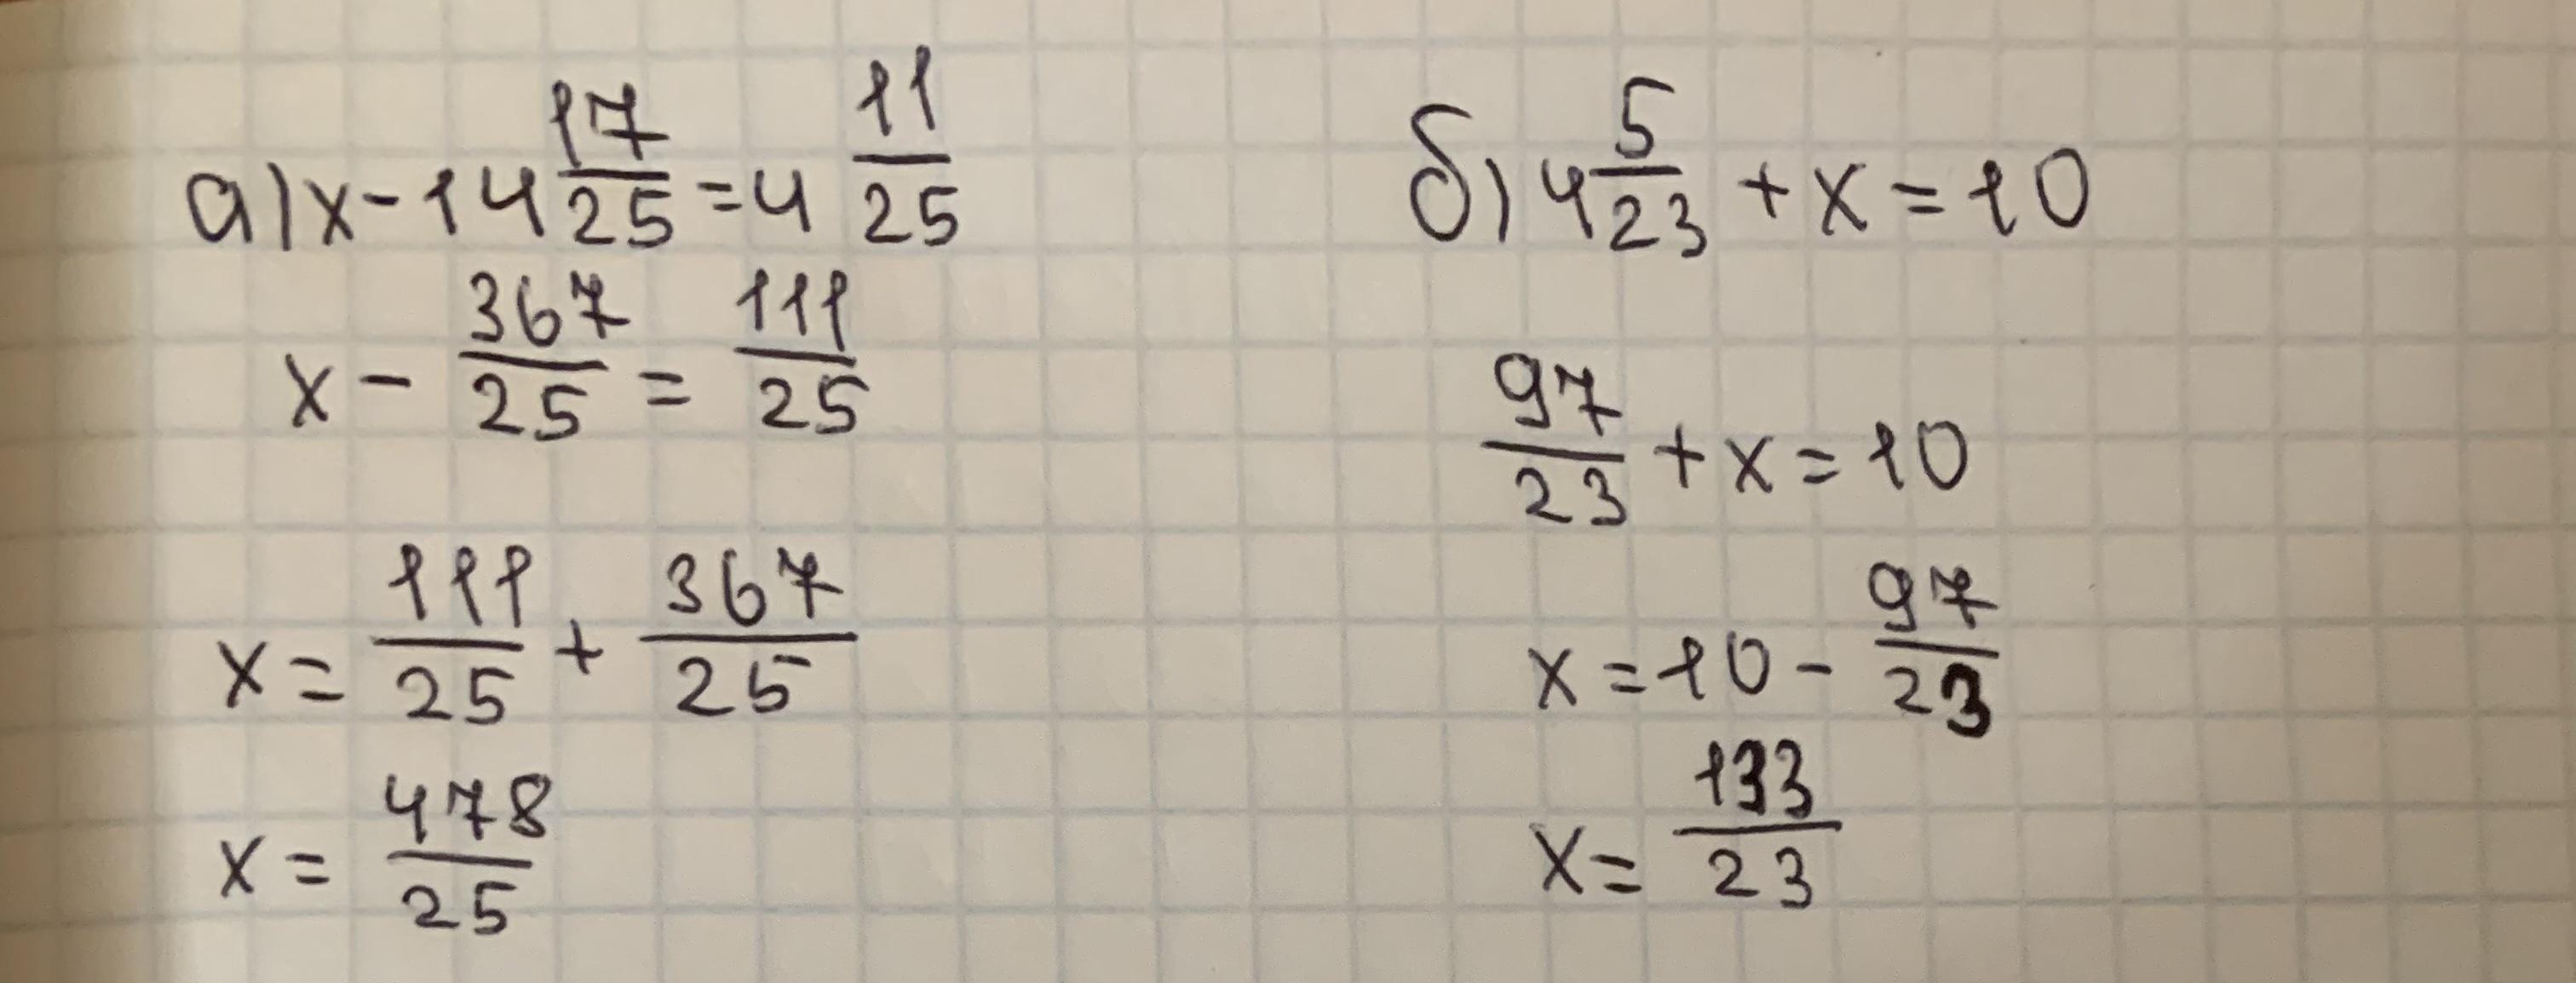 а) x - 14 17/25 = 4 11/25
x - 367/25 = 111/25
x = 111/25 + 367/25
x = 478/25
б) 4 5/23 + x = 10
97/23 + x = 10
x = 10 - 97/23
x = 133/23